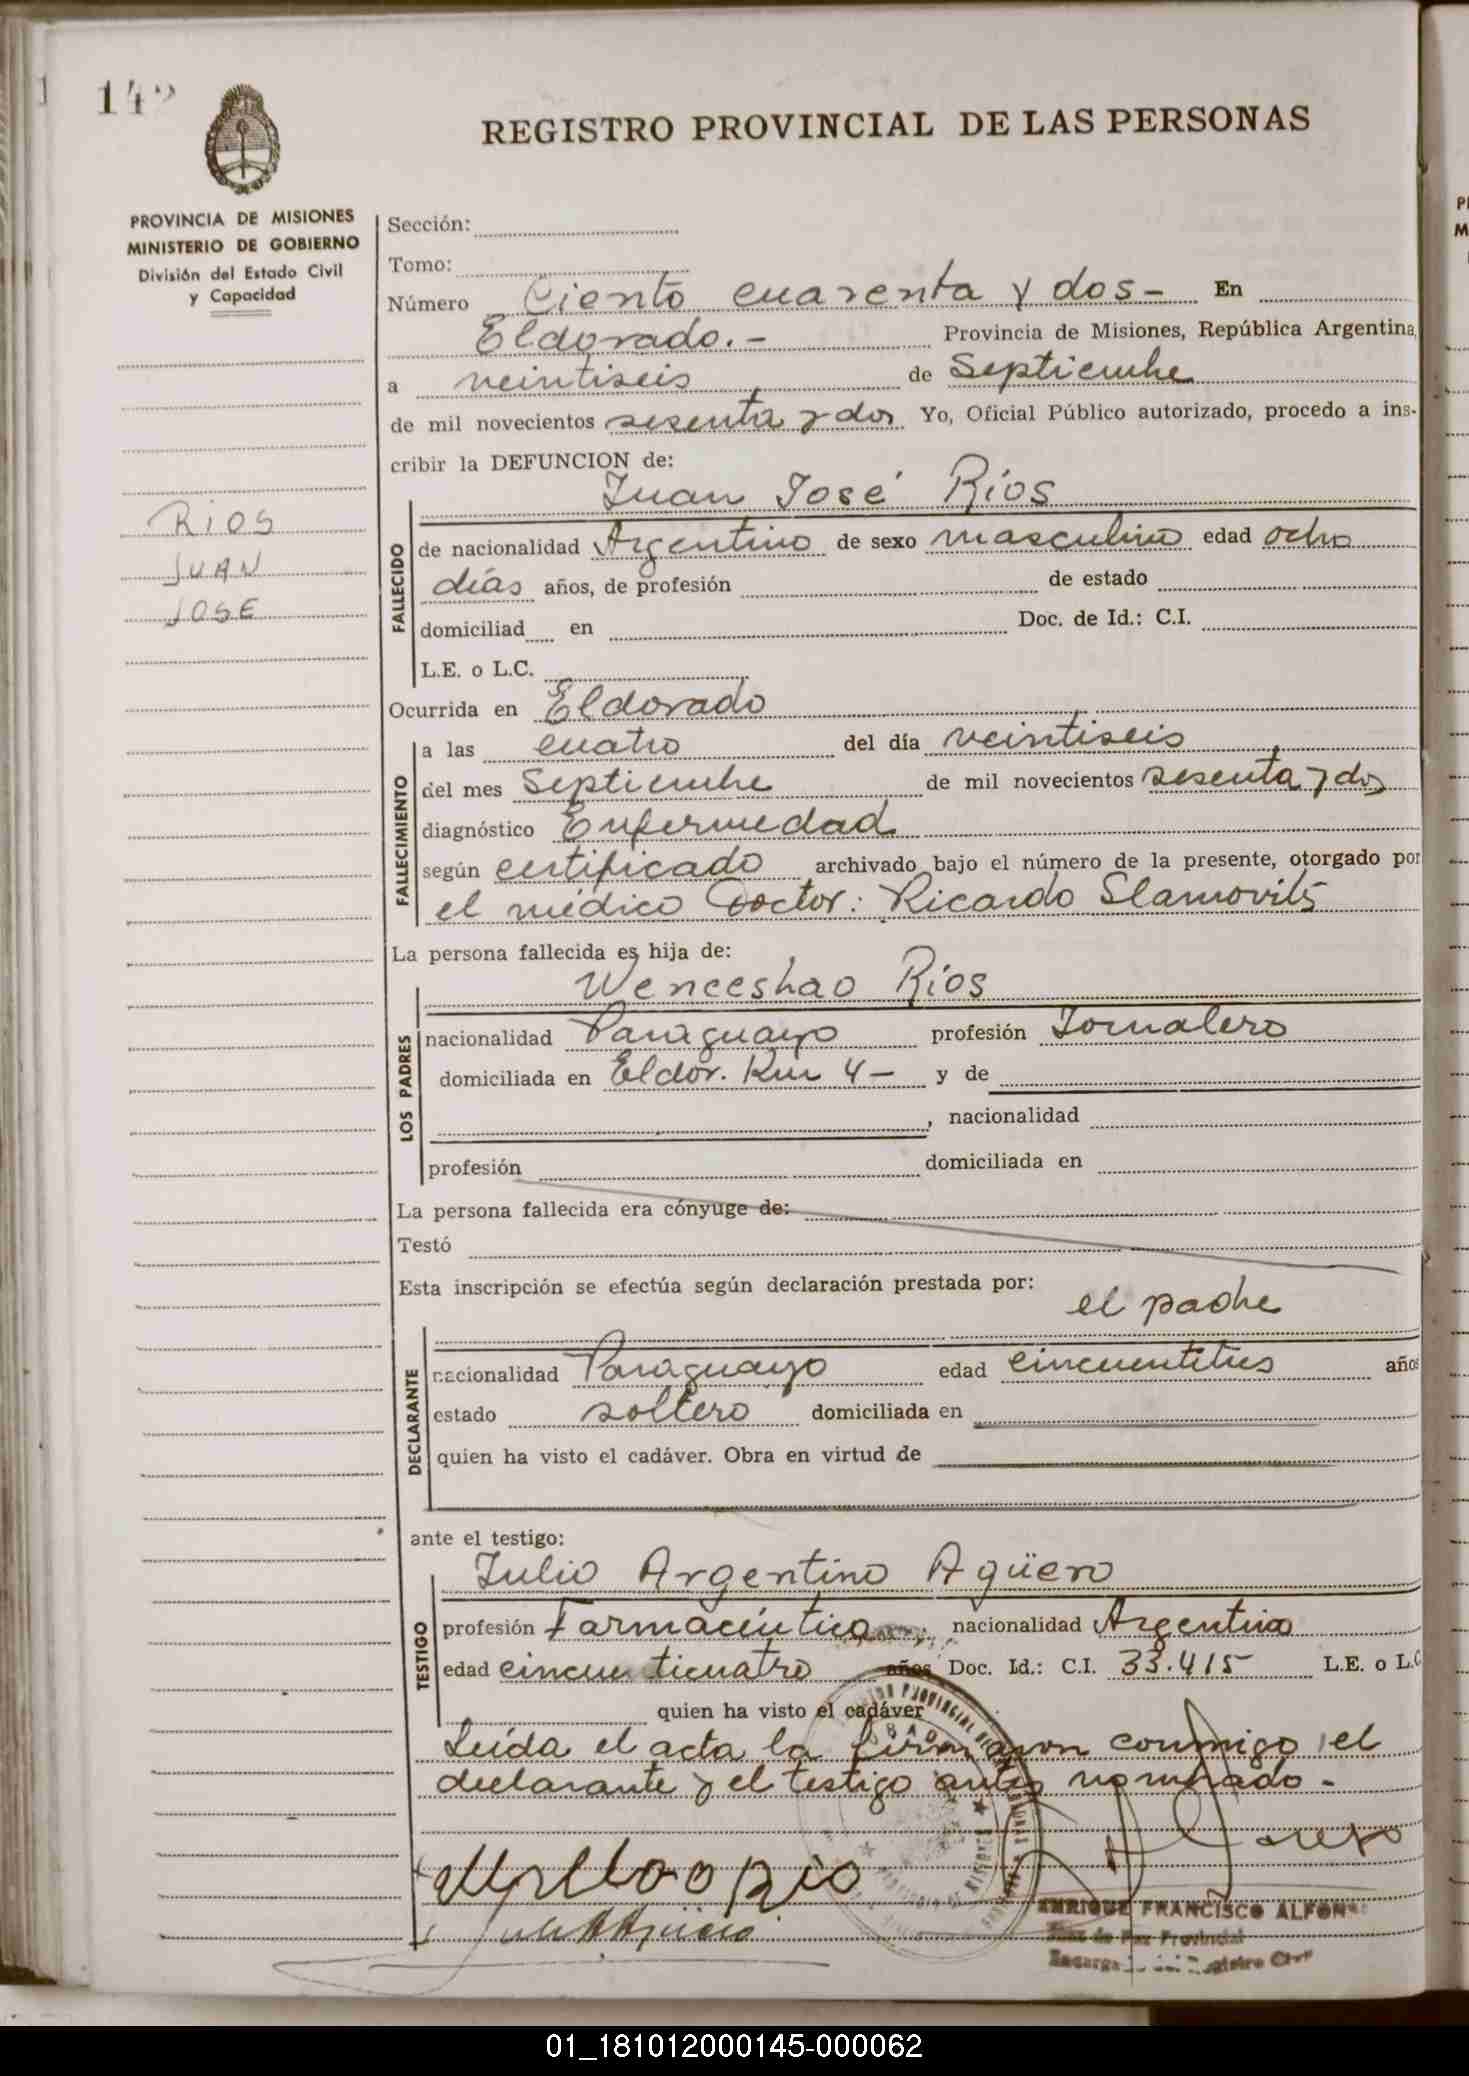 142
REGISTRO PROVINCIAL DE LAS PERSONAS
PROVINCIA DE MISIONES
MINISTERIO DE GOBIERNO
División del Estado Civil
y Capacidad
RIOS
JUAN
JOSE
Sección:
Tomo:
Número Ciento cuarenta y dos - En
Eldorado. - Provincia de Misiones, República Argentina,
a veintiseis de Septiembre
de mil novecientos sesenta y dos Yo, Oficial Público autorizado, procedo a ins-
cribir la DEFUNCION de:
Juan José Ríos
FALLECIDO
de nacionalidad Argentino de sexo masculino edad ocho
días años, de profesión de estado
domiciliad en Doc. de Id.: C.I.
L.E. o L.C.
Ocurrida en Eldorado
FALLECIMIENTO
a las cuatro del día veintiseis
del mes Septiembre de mil novecientos sesenta y dos
diagnóstico Enfermedad
según certificado archivado bajo el número de la presente, otorgado por
el médico Doctor: Ricardo Slamovits
La persona fallecida es hija de:
Wenceslao Ríos
LOS PADRES
nacionalidad Paraguayo profesión Jornalero
domiciliada en Eldor. Km 4 - y de
, nacionalidad
profesión domiciliada en
La persona fallecida era cónyuge de:
Testó
Esta inscripción se efectúa según declaración prestada por:
el padre
DECLARANTE
nacionalidad Paraguayo edad cincuentitres años
estado soltero domiciliada en
quien ha visto el cadáver. Obra en virtud de
ante el testigo:
Julio Argentino Agüero
TESTIGO
profesión Farmacéutico nacionalidad Argentino
edad cincuenticuatro años Doc. Id.: C.I. 33.415 L.E. o L.C
quien ha visto el cadáver
Leída el acta la firmaron conmigo, el
declarante y el testigo antes nombrado -
ENRIQUE FRANCISCO ALFON
Juez de Paz Provincial
Registro Civil
01_181012000145-000062